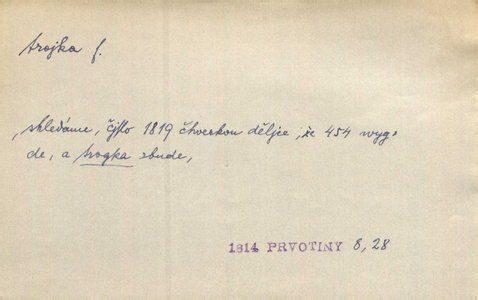 trojka f.
„shledáme, čjslo 1819 čtwerkou děljce, že 454 wyg-
de, a trogka zbude,
1814 PRVOTINY 8, 28